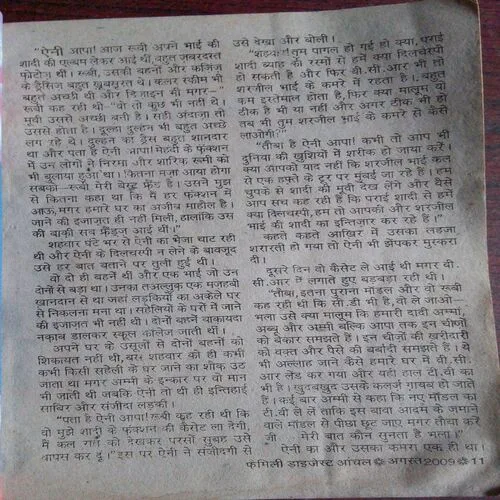 "ऐनी आपा! आज रूबी अपने भाई की
शादी की एल्बम लेकर आई थी, बहुत जबरदस्त
फोटोज थीं। रूबी, उसकी बहनों और कजिंज
के ड्रेसिज बहुत खूबसूरत थे। कलर स्कीम भी
बहुत अच्छी थी और डिजाइन भी मगर–"
रूबी कह रही थी–"वो तो कुछ भी नहीं थे।
मूवी उससे अच्छी बनी है। सही अंदाजा तो
उससे होता है। दूल्हा दुल्हन भी बहुत अच्छे
लग रहे थे। दुल्हन का ड्रेस बहुत शानदार
था और पता है ऐनी आपा! मेहंदी के फंक्शन
में उन लोगों ने निरमा और शारिक रूमी को
भी बुलाया हुआ था। कितना मजा आया होगा
सबको–रूबी मेरी बेस्ट फ्रेंड है। उसने मुझ
से कितना कहा था कि मैं हर फंक्शन में
आऊं, मगर हमारे घर का अजीब माहौल है।
जाने की इजाजत ही नहीं मिली, हालांकि उस
की बाकी सब फ्रैंड्ज आई थीं।"
शहवार घंटे भर से ऐनी का भेजा चाट रही
थी और ऐनी के दिलचस्पी न लेने के बावजूद
उसे हर बात बताने पर तुली हुई थी।
वो दो ही बहनें थीं और एक भाई जो उन
दोनों से बड़ा था। उनका तअल्लुक एक मजहबी
खानदान से था जहां लड़कियों का अकेले घर
से निकलना मना था। सहेलियों के घरों में जाने
की इजाजत भी नहीं थी। दोनों बहनें बाकायदा
नकाब डालकर स्कूल कालेज जाती थीं।
अपने घर के उसूलों से दोनों बहनों को
शिकायत नहीं थी, बस शहवार को ही कभी
कभी किसी सहेली के घर जाने का शौक उठ
जाता था मगर अम्मी के इन्कार पर वो मान
भी जाती थी जबकि ऐनी तो थी ही इन्तिहाई
साबिर और संजीदा लड़की।
"पता है ऐनी आपा! रूबी कह रही थी कि
वो मुझे शादी के फंक्शन की कैसेट ला देगी,
मैं कल रात को देखकर परसों सुबह उसे
वापस कर दूं।" इस पर ऐनी ने संजीदगी से
उसे देखा और बोली।
"शहवार! तुम पागल हो गई हो क्या, पराई
शादी ब्याह की रस्मों से हमें क्या दिलचस्पी
हो सकती है और फिर वी.सी.आर भी तो
शरजील भाई के कमरे में रहता है। बहुत
कम इस्तेमाल होता है, फिर क्या मालूम वो
ठीक है भी या नहीं और अगर ठीक भी हो
तब भी तुम शरजील भाई के कमरे से कैसे
लाओगी?"
"तौबा है ऐनी आपा! कभी तो आप भी
दुनिया की खुशियों में शरीक हो जाया करें।
क्या आपको याद नहीं कि शरजील भाई कल
से एक हफ्ते के टूर पर मुंबई जा रहे हैं। हम
चुपके से शादी की मूवी देख लेंगे और वैसे
आप सच कह रही हैं कि पराई शादी से हमें
क्या दिलचस्पी, हम तो आपकी और शरजील
भाई की शादी का इन्तिजार कर रहे हैं।"
कहते कहते आखिर में उसका लहजा
शरारती हो गया तो ऐनी भी झेंपकर मुस्करा
दी।
दूसरे दिन वो कैसेट ले आई थी मगर वी.
सी.आर में लगाते हुए बड़बड़ा रही थी।
"तौबा, इतना पुराना मॉडल और वो रूबी
कह रही थी कि सी.डी भी है, वो ले जाओ–
भला उसे क्या मालूम कि हमारी दादी अम्मा,
अब्बू और अम्मी बल्कि आपा तक इन चीजों
को बेकार समझते हैं। इन चीजों की खरीदारी
को वक्त और पैसे की बर्बादी समझते हैं। ये
भी अल्लाह जाने कैसे हमारे घर में वी.सी.
आर लेंड कर गया और यही हाल टी.वी का
भी है। खुदबखुद उसके कलर्ज गायब हो जाते
हैं। कई बार अम्मी से कहा कि नए मॉडल का
टी.वी ले लें ताकि इस बावा आदम के जमाने
वाले मॉडल से पीछा छूट जाए मगर तौबा करें
जी मेरी बात कौन सुनता है भला।"
ऐनी का और उसका कमरा एक ही था।
फेमिली डाइजेस्ट आंचल ❋ अगस्त 2009 ❋ 11